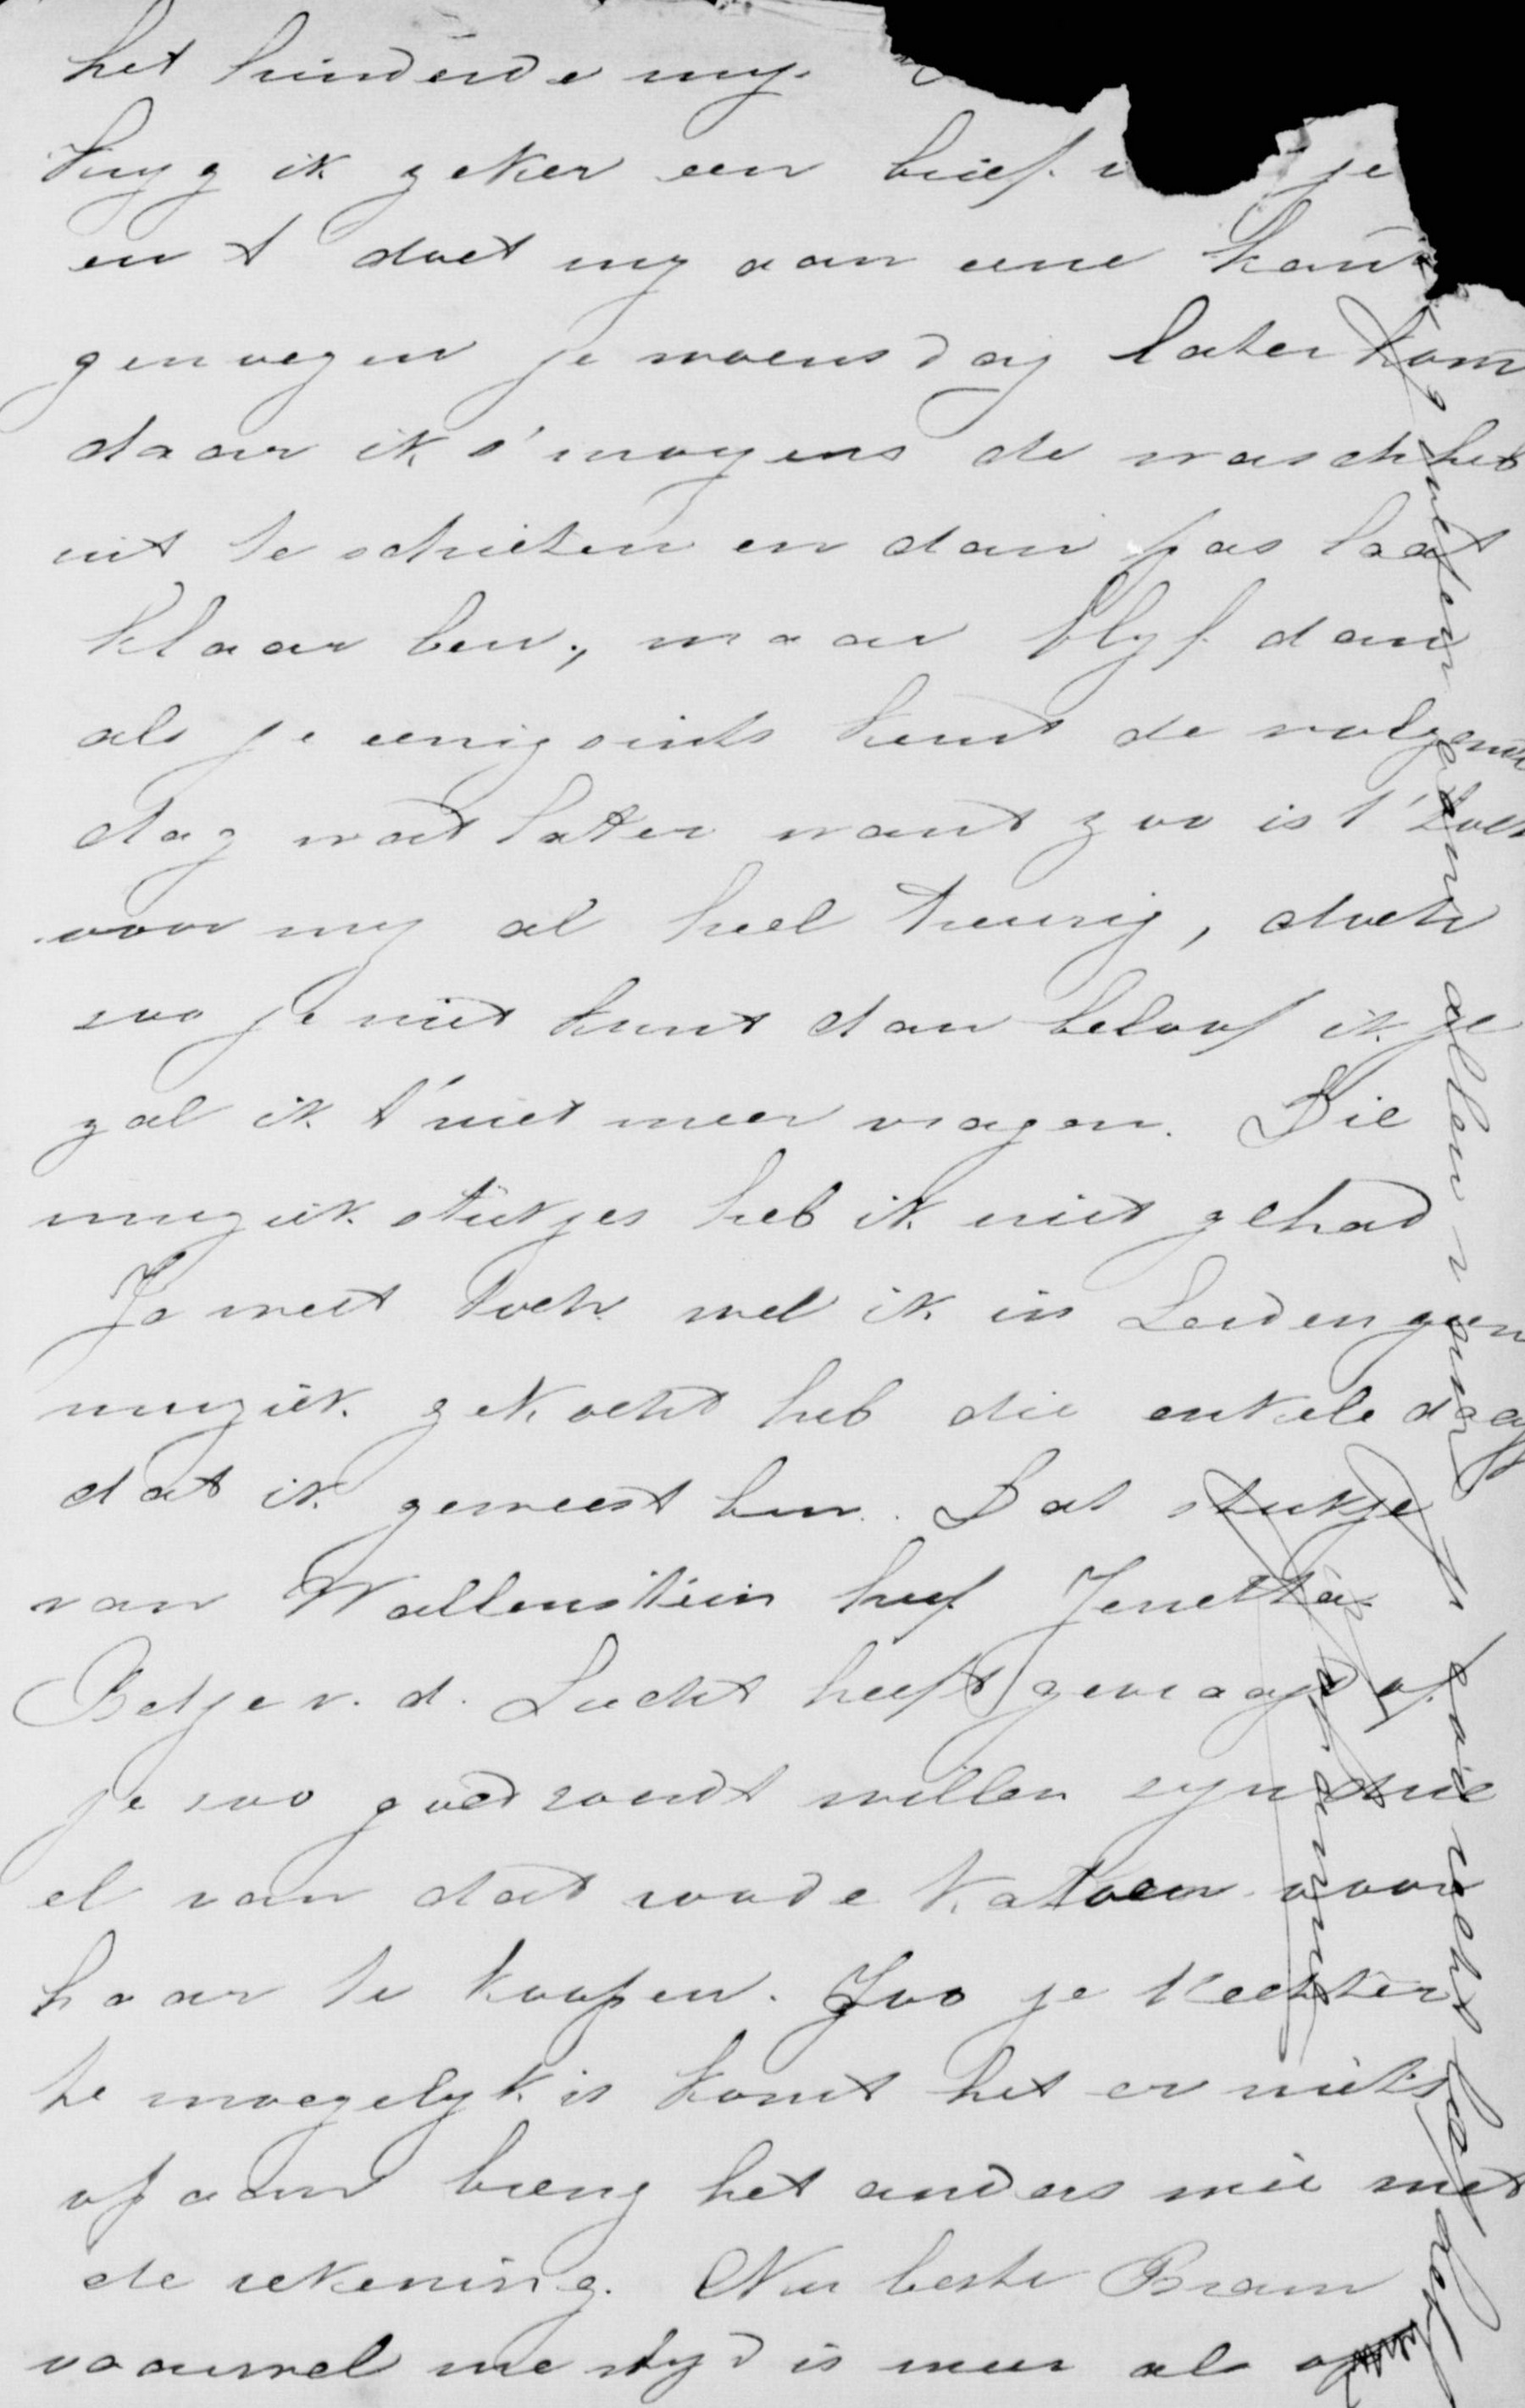 het hinderde my.
kryg ik zeker een brief je
en t doet my aan eene kant
genoegen je woensdag later kom
daar ik s'morgens de wasch heb
uit te schieten en dan pas laat
klaar ben, maar blyf dan
als je eenigsints kunt de volgende
dag wat later want zoo is t' toch
voor my al heel treurig, doch
zoo je niet kunt dan beloof ik je
zal ik t' niet meer vragen. Die
muziek stukjes heb ik niet gehad
Je weet toch wel ik in Leiden geen
muziek gekocht heb die enkele daag
dat ik geweest ben. Dat stukje
van Wallenstein heef Jenetta.
Betje v. d. Lucht heeft gevraagd of
je zoo goed zoudt willen zyn drie
el van dat roode katoen voor
haar te koopen. Zoo je t echter
te moegelyk is komt het er niets
op aan breng het anders mee met
de rekening. Nu beste Bram
vaarwel me tyd is meer als om